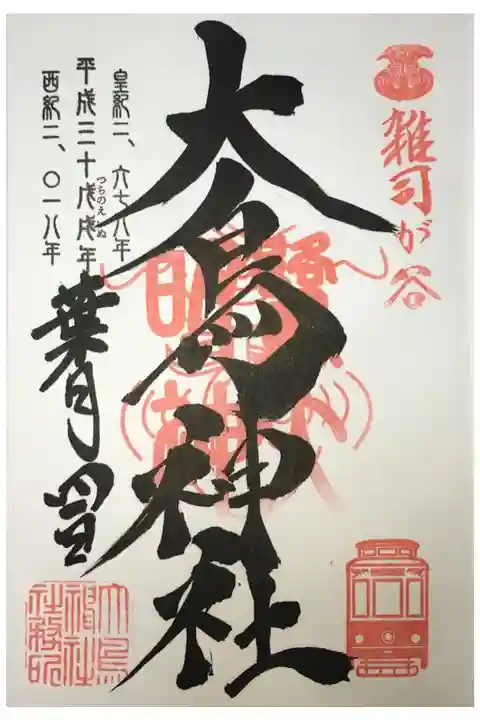 雑司が谷
大鳥神社
皇紀二、六七八年
平成三十戊戌年
つちのえいぬ
西紀二、〇一八年
葉月
大鳥
神社